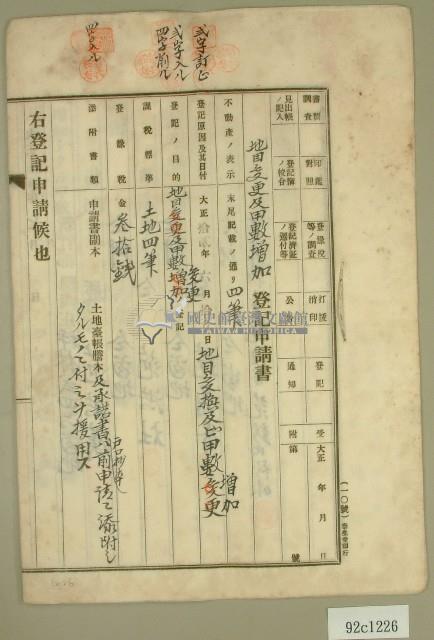 弍字訂正
弍字入ル
四字前ル
四字入ル
(一〇號)
書類調査
印鑑對照
登録税等ノ調査
訂正消印
登記
受
大正 年 月 日
見出帳ノ記入
登記簿ノ校合
登記濟証ノ還付等
公告
通知
附
第 號
地目変更及甲數增加 登記申請書
不動產ノ表示 末尾記載ノ通リ四筆
登記原因及其日付 大正 六月 日 地目変換及甲數変更
增加
登記ノ目的 地目変更及甲數增加 記
変更
課稅標準 土地四筆
登録稅金 叁拾錢
添附書類 申請書副本
土地臺帳謄本及承諾書ハ前申請ニ添附シ
タルモノニ付之ヲ援用ス
右登記申請候也
國史館臺灣文獻館
TAIWAN HISTORICA
92c1226